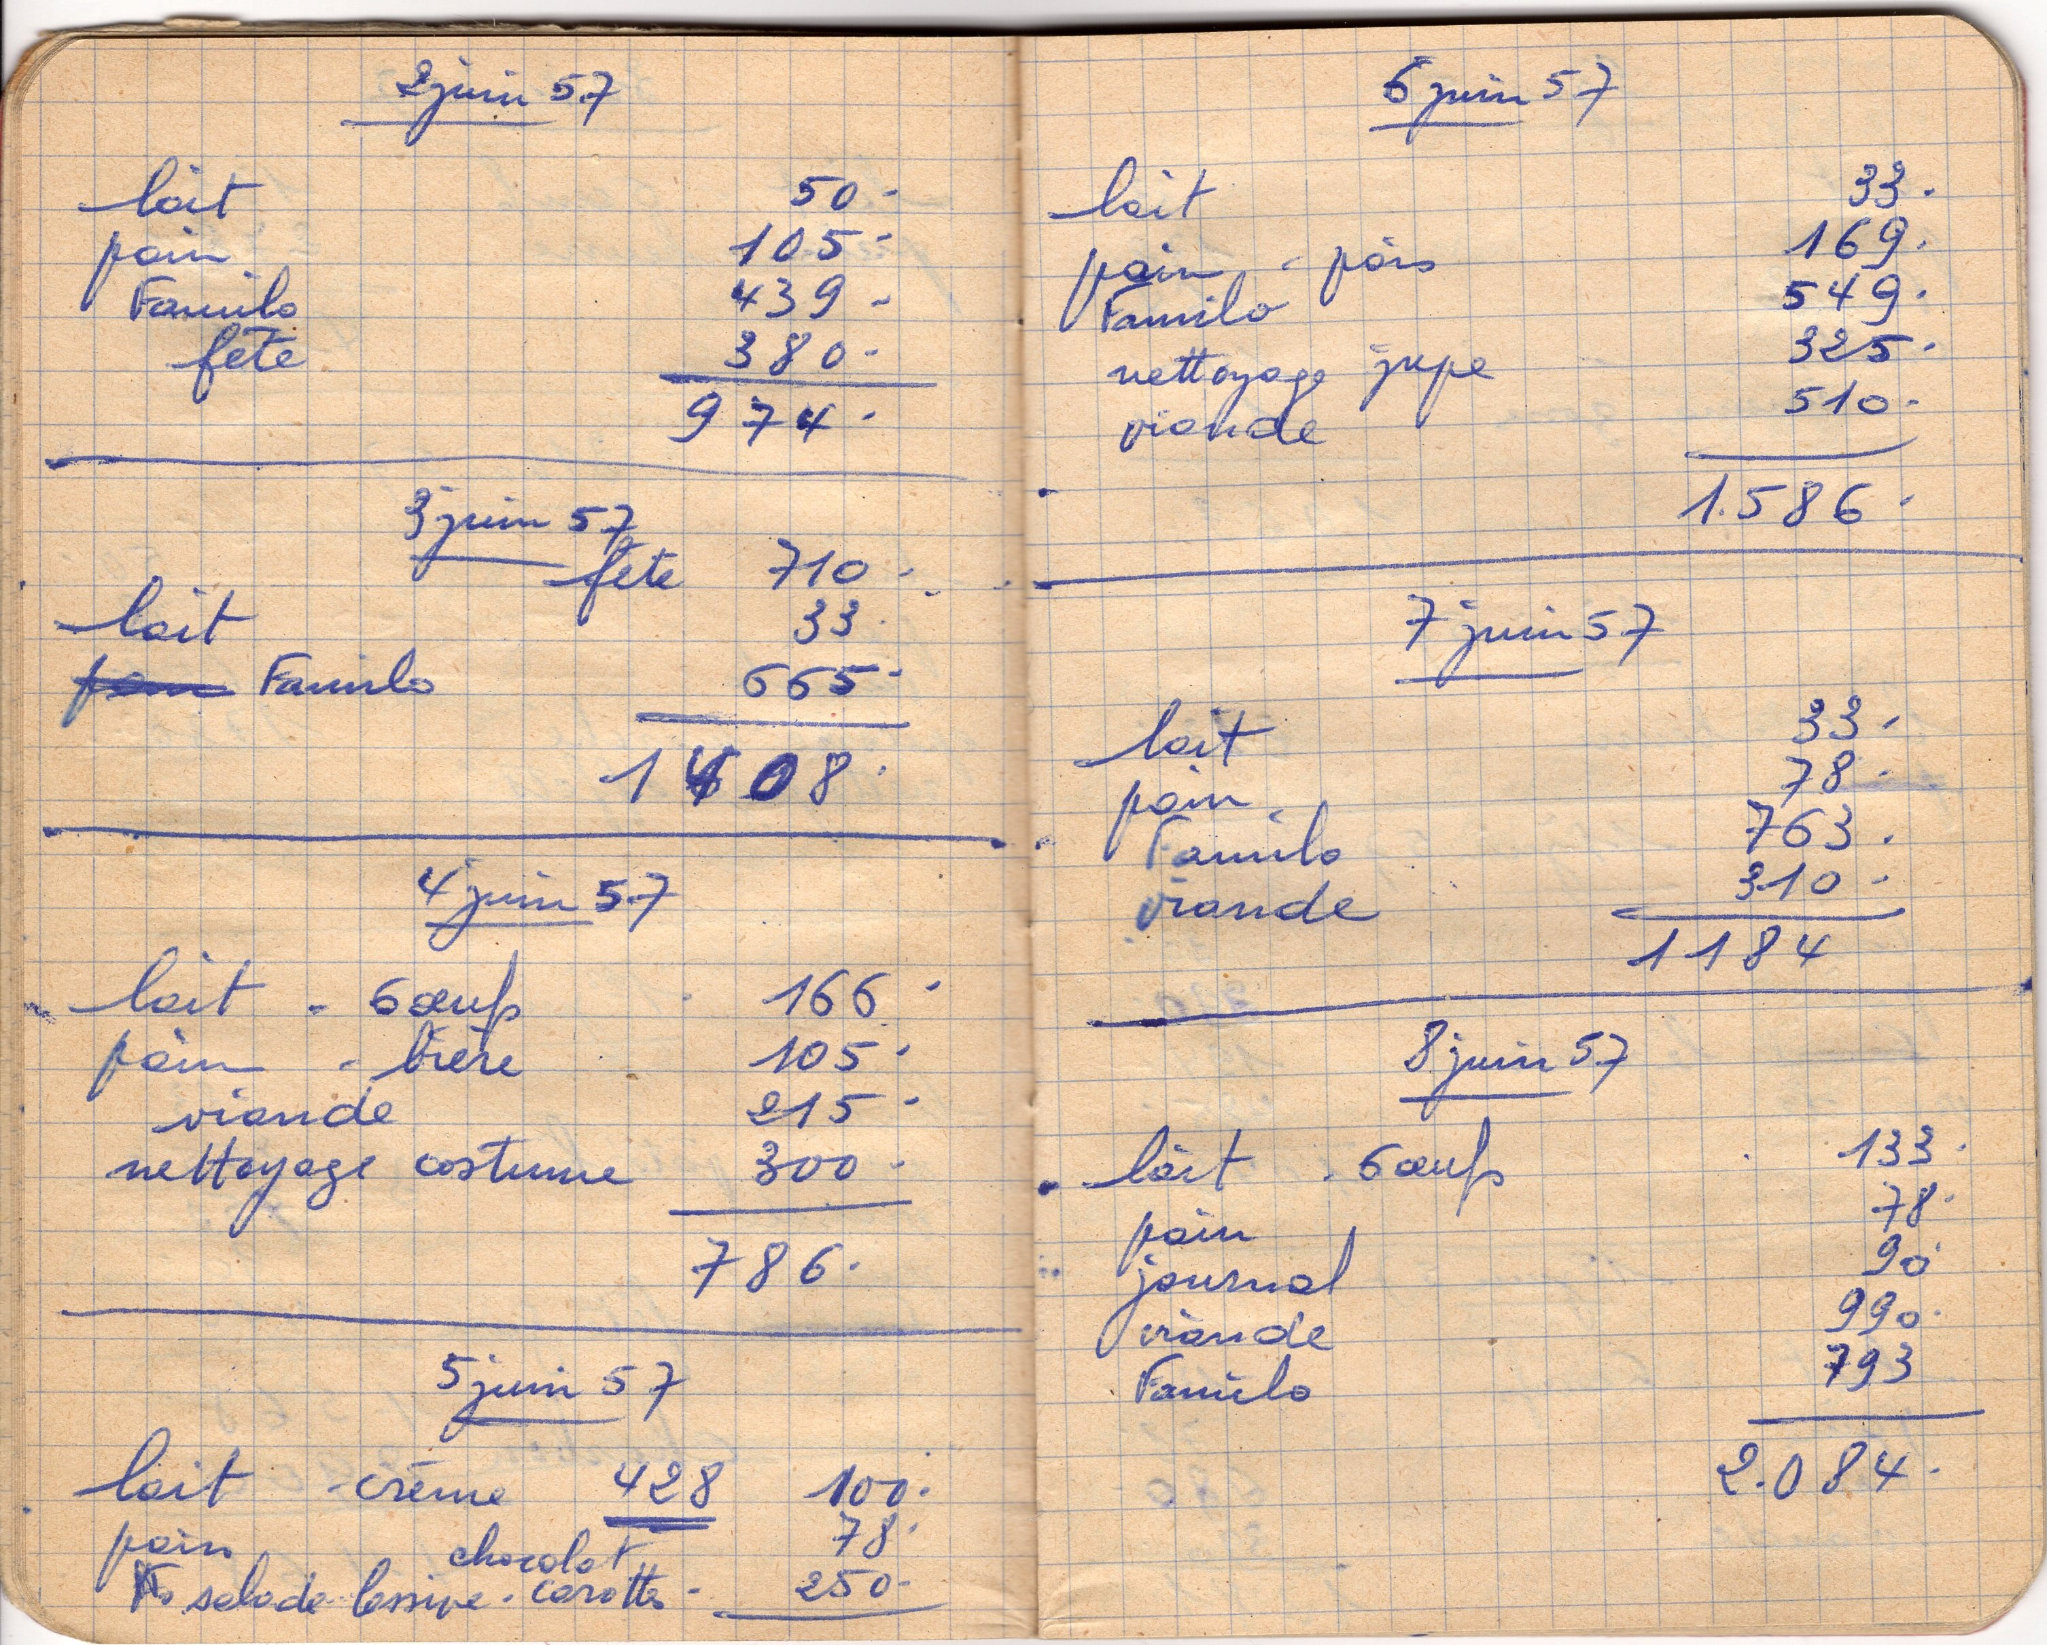 2 juin 57
lait 50.-
pain 105.-
Familo 439.-
fête 380.-
974.-
3 juin 57
fête 710.-
lait 33.
Familo 665.-
1408.
4 juin 57
lait - 6 œufs 166.-
pain - bière 105.-
viande 215.-
nettoyage costume 300.-
786.
5 juin 57
lait - crème 428 100.-
pain 78.
chocolat
salade - lessive - carottes - 250.-
6 juin 57
lait 33.
pain - pois 169.
Familo 549.
nettoyage jupe 325.
viande 510.
1.586.
7 juin 57
lait 33.-
pain 78.-
Familo 763.
viande 310.-
1184
8 juin 57
lait - 6 œufs 133.
pain 78.
journal 90
viande 990.
Familo 793
2.084.